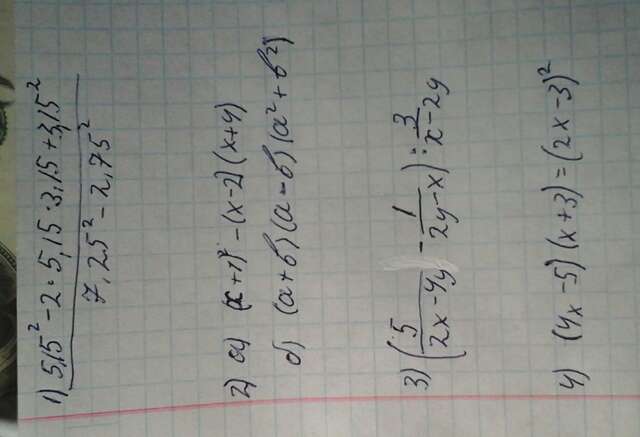 1) 5,15² - 2 · 5,15 · 3,15 + 3,15²
7,25² - 2,75²
2) а) (x+1)² - (x-2)(x+4)
б) (a+b)(a-b)(a²+b²)
3) (5/(2x-4y) - 1/(2y-x)) : 3/(x-2y)
4) (4x-5)(x+3) = (2x-3)²